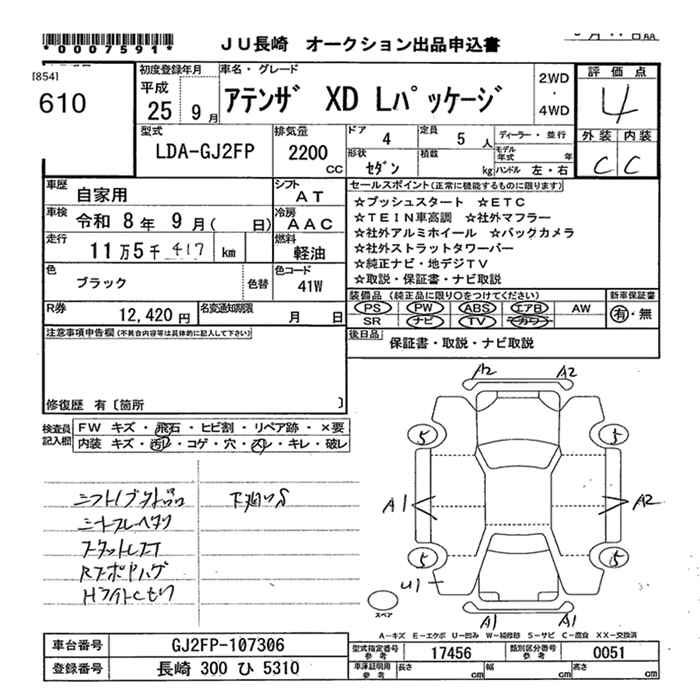 *0007591*
JU長崎 オークション出品申込書
[854]
610
初度登録年月
平成
25 9月
車名・グレード
アテンザ XD Lパッケージ
2WD
・
4WD
評価点
4
外装 内装
C C
型式
LDA-GJ2FP
排気量
2200
CC
ドア 4
定員 5 人
形状 セダン
積数 kg
ディーラー・並行
モデル年式 年
ハンドル 左・右
車歴
自家用
シフト
AT
車検
令和 8年 9月( 日)
冷房
AAC
走行
11万5千 417 km
燃料
軽油
色
ブラック
色替
色コード
41W
R券
12,420円
名変通知期限
月 日
セールスポイント(正常に機能するものに限ります)
☆プッシュスタート ☆ETC
☆TEIN車高調 ☆社外マフラー
☆社外アルミホイール ☆バックカメラ
☆社外ストラットタワーバー
☆純正ナビ・地デジTV
☆取説・保証書・ナビ取説
装備品(純正品に限り○をつけてください)
新車保証書
PS PW ABS エアB AW
SR ナビ TV カワ
有・無
後日品
保証書・取説・ナビ取説
注意事項申告欄(不具合内容等は具体的に記入して下さい)
修復歴 有〔箇所 〕
検査員
記入欄
FW キズ・飛石・ヒビ割・リペア跡・×要
内装 キズ・汚レ・コゲ・穴・スレ・キレ・破レ
A2 A2
5 5
A1 A2
5 5
U1
A1 A1
スペア
A-キズ E-エクボ U-凹み W-補修跡 S-サビ C-腐食 XX-交換済
車台番号
GJ2FP-107306
登録番号
長崎 300 ひ 5310
型式指定番号
参考
17456
類別区分番号
参考
0051
車庫証明用
参考
長さ cm 幅 cm 高さ cm